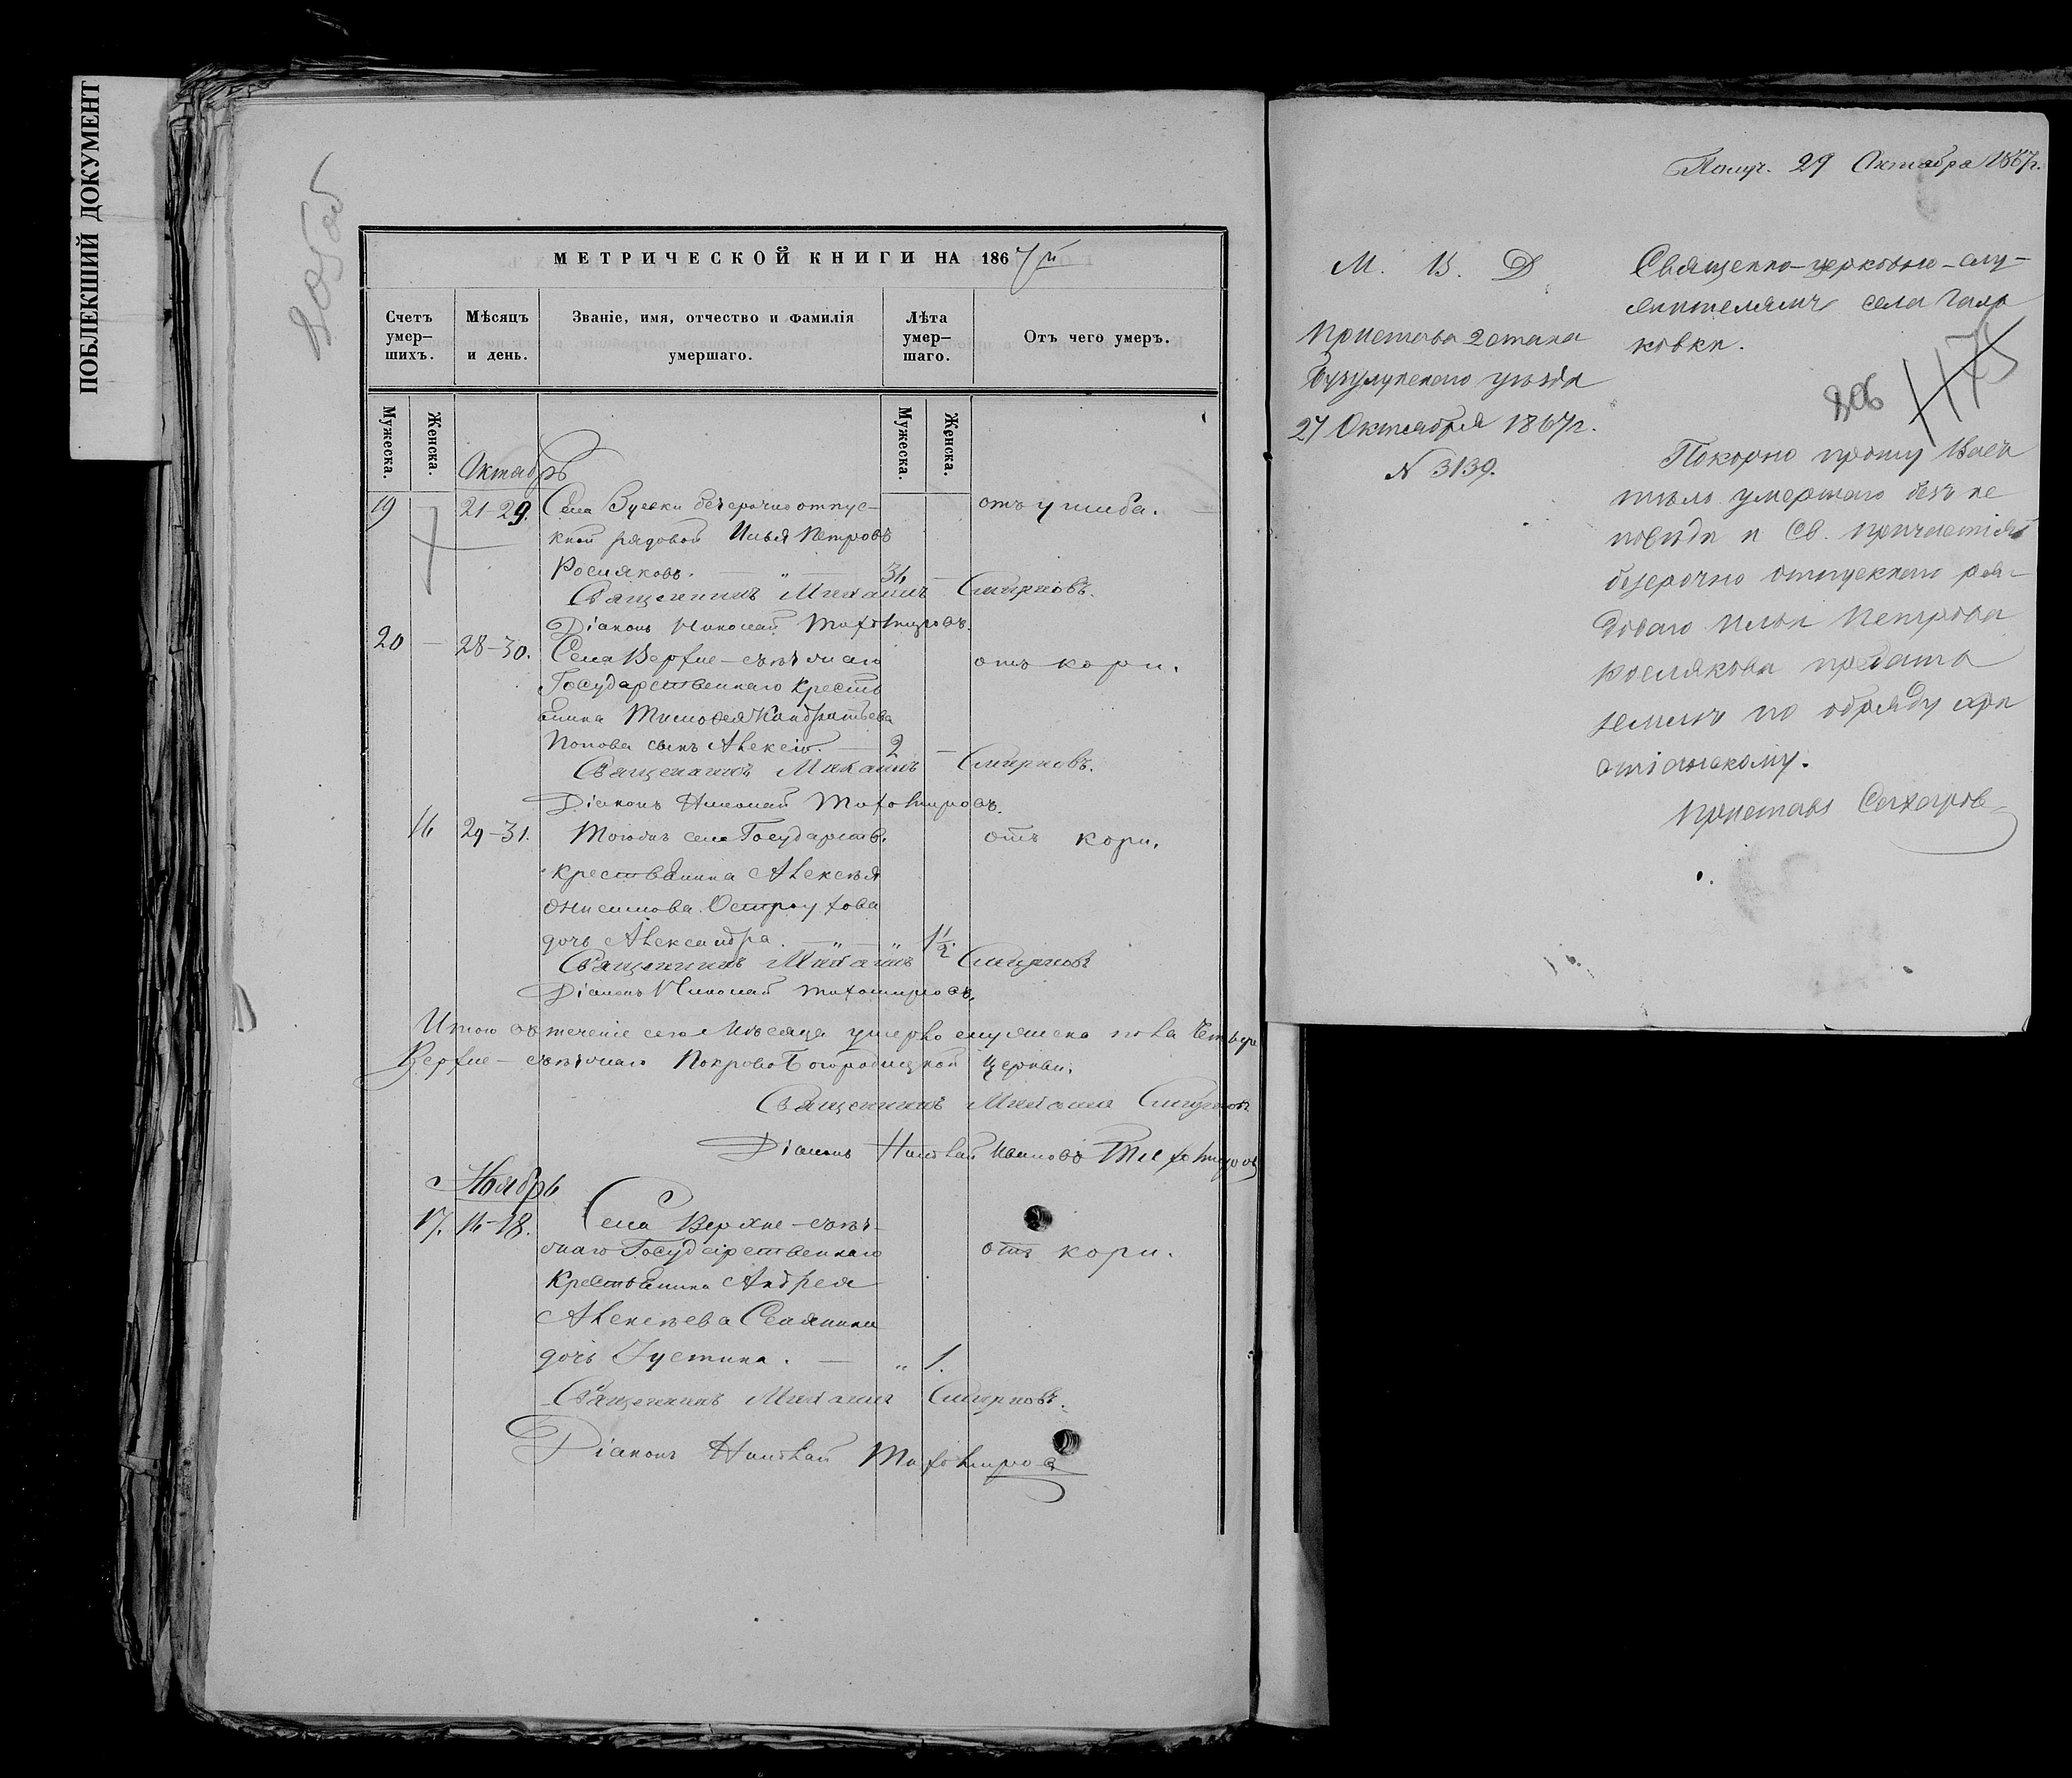 ПОБЛЕКШИЙ ДОКУМЕНТ
805об
МЕТРИЧЕСКОЙ КНИГИ НА 1867й
Счетъ умер-шихъ.
Мѣсяцъ и день.
Званіе, имя, отчество и фамилія умершаго.
Лѣта умер-шаго.
Отъ чего умеръ.
Мужеска.
Женска.
Мужеска.
Женска.
Октябрь
19 21-29. Села безсрочно отпус- отъ ушиба.
кной рядовой Илья Петровъ
Росляковъ. 34
Священникъ Михаилъ Смирновъ.
Діаконъ Николай Тихомировъ.
20 28-30. Села Верхне-съѣзжаго отъ кори.
Государственнаго кресть
янина Тимофея Кондратьева
Попова сынъ Алексѣй. 2
Священникъ Михаилъ Смирновъ.
Діаконъ Николай Тихомировъ.
16 29-31. Тогожъ села Государств. отъ кори.
крестьянина Алексѣя
Онисимова Остроухова
дочь Александра. 1 1/2
Священникъ Михаилъ Смирновъ
Діаконъ Николай Тихомировъ.
Итого въ теченіе сего мѣсяца умерло пола
Верхне-съѣзжаго Покрово Богородицкой церкви:
Священникъ Михаилъ Смирновъ
Діаконъ Николай Ивановъ Тихомировъ
Ноябрь
17. 16-18. Села Верхне-съѣз-
жаго Государственнаго отъ кори.
крестьянина Андрея
Алексѣева
дочь Устина. 1.
Священникъ Михаилъ Смирновъ.
Діаконъ Николай Тихомировъ
Получ. 29 Октября 1867г.
М. В. Д
Пристава 2 стана
Бузулукскаго уѣзда
27 Октября 1867г.
N 3139.
Священно-церковно-слу-
жителямъ села Галь
ковки.
806
1175
Покорно прошу Васъ
тѣло умершаго безъ ис
повѣди и Св. причастія
безсрочно отпускнаго ря-
доваго Ильи Петрова
Рослякова предать
землѣ по обряду хри
стіанскому.
Приставъ Сахаров